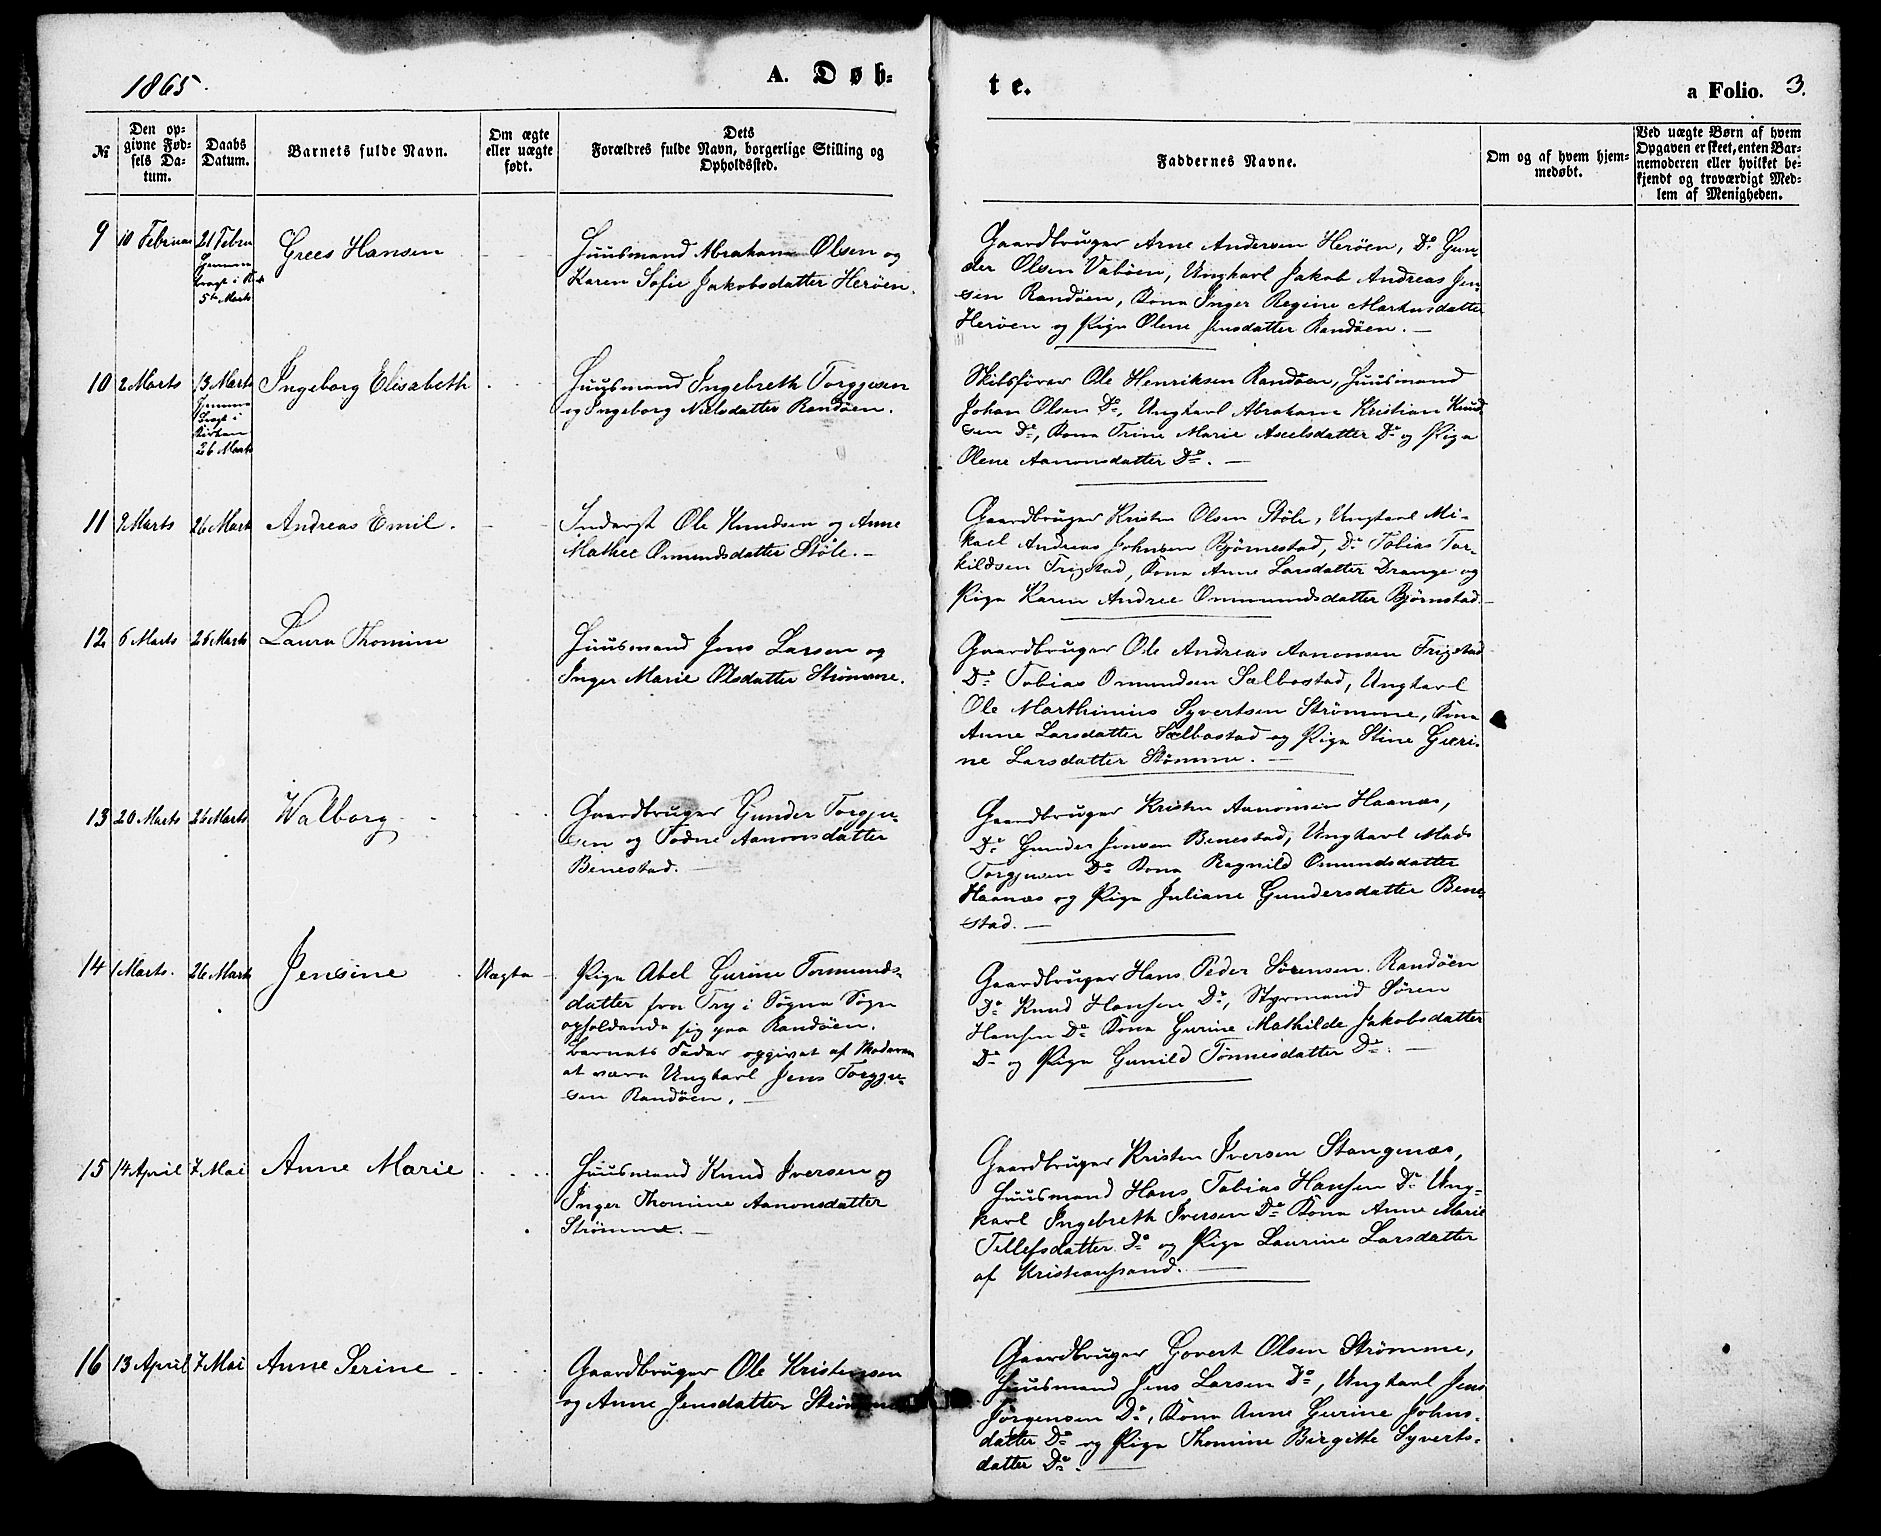 1865.
A. Døb-
te.
a Folio. 3.
№
Den op-
givne Fød-
sels Da-
tum.
Daabs
Datum.
Barnets fulde Navn.
Om ægte
eller uægte
født.
Dets
Forældres fulde Navn, borgerlige Stilling og
Opholdssted.
Faddernes Navne.
Om og af hvem hjem-
medøbt.
Ved uægte Børn af hvem
Opgaven er skeet, enten Bar-
nemoderen eller hvilket be-
kjendt og troværdigt Med-
lem af Menigheden.
9
10 Februar
21 Febru
Hjemme
bragt i
5te Marts
Grees Hansen
Huusmand Abraham Olsen og
Karen Sofie Jakobsdatter Herøen.
Gaardbruger Arne Andersen Herøen, Do Gun-
der Olsen Vabøen, Ungkarl Jakob Andreas Jen-
sen Randøen, Kona Inger Regine Markusdatter
Herøen og Pige Olene Jensdatter Randøen. —
10
2 Marts
13 Marts
Hjemme
bragt i
Kirken
26 Marts
Ingeborg Elisabeth
Huusmand Ingebreth Torgjusen
og Ingeborg Nielsdatter Randøen.
Skibsfører Ole Henriksen Randøen, Huusmand
Johan Olsen Do, Ungkarl Abraham Kristian Knud-
sen Do, Kona Trine Marie Axelsdatter Do og Pige
Olene Aanonsdatter Do. —
11
2 Marts
26 Marts
Andreas Emil.
Inderst Ole Knudsen og Anne
Mathee Omundsdatter Støle. —
Gaardbruger Kristen Olsen Støle, Ungkarl Mi-
kael Andreas Johnsen Bjørnestad, Do Tobias Tor-
kildsen Frigstad, Kona Anne Larsdatter Drange og
Pige Karen Andree Ommundsdatter Bjørnstad.
12
6 Marts
26 Marts
Laura Thomine
Huusmand Jens Larsen og
Inger Marie Olsdatter Strømme.
Gaardbruger Ole Andreas Aanensen Frigstad
Do Tobias Omundsen Sælbostad, Ungkarl
Ole Marthinius Syvertsen Strømme, Kona
Anne Larsdatter Sælbostad og Pige Stine Guri-
ne Larsdatter Strømme. —
13
20 Marts
26 Marts
Walborg
Gaardbruger Gunder Torgju-
sen og Todne Aanonsdatter
Benestad. —
Gaardbruger Kristen Aanonsen Haanæs,
Do Gunder Jensen Benestad, Ungkarl Mads
Torgjusen Do Kona Ragnild Omundsdatter
Haanæs og Pige Juliane Gundersdatter Bene-
stad. —
14
1 Marts.
26 Marts
Jensine
Uægte
Pige Abel Gurine Tormunds-
datter fra Try i Søgne Sogn
opholdende sig paa Randøen.
Barnets Fader opgivet af Moderen
at være Ungkarl Jens Torgju-
sen Randøen. —
Gaardbruger Hans Peder Sørensen Randøen
Do Knud Hansen Do, Styrmand Søren
Hansen Do Kona Gurine Mathilde Jakobsdatter
Do og Pige Gunild Tønnesdatter Do. —
15
14 April
7 Mai
Anne Marie
Huusmand Knud Iversen og
Inger Thomine Aanonsdatter
Strømme. —
Gaardbruger Kristen Iversen Stangenæs,
Huusmand Hans Tobias Hansen Do Ung-
karl Ingebreth Iversen Do Kona Anne Marie
Tellefsdatter Do og Pige Laurine Larsdatter
af Kristiansand. —
16
13 April
7 Mai
Anne Serine
Gaardbruger Ole Kristensen
og Anne Jensdatter Strømme
Gaardbruger Govert Olsen Strømme,
Huusmand Jens Larsen Do, Ungkarl Jens
Jørgensen Do, Kona Anne Gurine Johns-
datter Do og Pige Thomine Birgitte Syverts-
datter Do. —